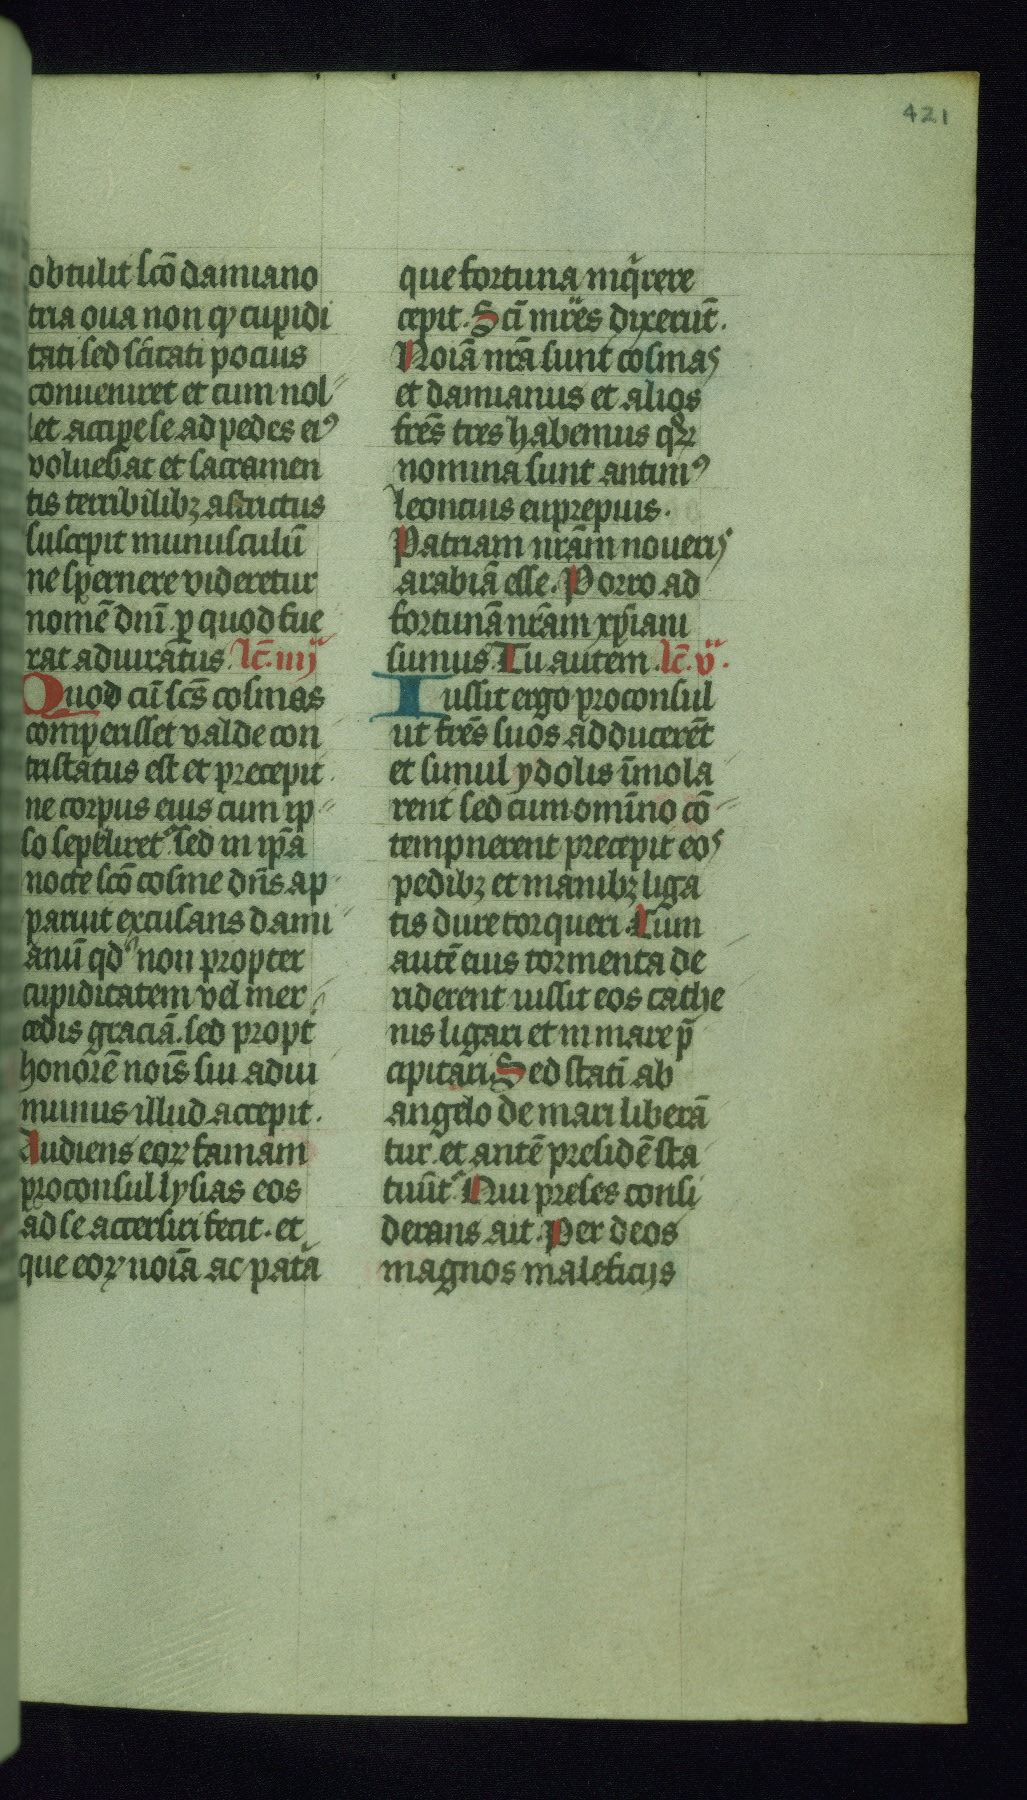 421
obtulit scō damiano
tria oua non qͥ cupidi
tati sed sc̄itati pocius
conueniret et cum nol
let accip̄e se ad pedes eiꝰ
voluebat et sacramen
tis terribilibꝫ astrictus
suscepit munusculū
ne sp̄ernere videretur
nomē dnī p̱ quod fue
rat adiuratus. lc̄. iiij
Quod cū scs̄ cosmas
comperisset valde con
tristatus est et precepit
ne corpus eius cum ip
so sepeliret᷑ sed in ip̄a
nocte scō cosme dn̄s ap
paruit excusans dami
anū qd̓ non propter
cupiditatem vel mer
cedis graciā. sed propt̓
honorē nois̄ sui adui
munus illud accepit.
Audiens eoꝝ famam
proconsul lysias eos
ad se accersiri fecit. et
que eoꝝ noīa ac pat̓a
que fortuna inqͥrere
cepit. Scī mr̄es dixerūt.
Noīa nr̄a sunt cosmas
et damianus et alios
fr̄es tres habemus qͦꝝ
nomina sunt antimꝰ
leoncius euprepius.
Patriam nr̄am noueris
arabiā esse. Porro ad
fortunā nr̄am xp̄iani
sumus. Tu autem. lc̄. v.
Iussit ergo proconsul
ut fr̄es suos adducerēt
et simul ydolis īmola
rent sed cum omīno cō
tempnerent precepit eos
pedibꝫ et manibꝫ liga
tis dure torqueri. Cum
autē eius tormenta de
riderent iussit eos cathe
nis ligari et in mare p̄
cipitari. Sed statī ab
angelo de mari liberā
tur. et antē presidē sta
tuūt᷑ Nui preses consi
derans ait. Per deos
magnos maleficijs